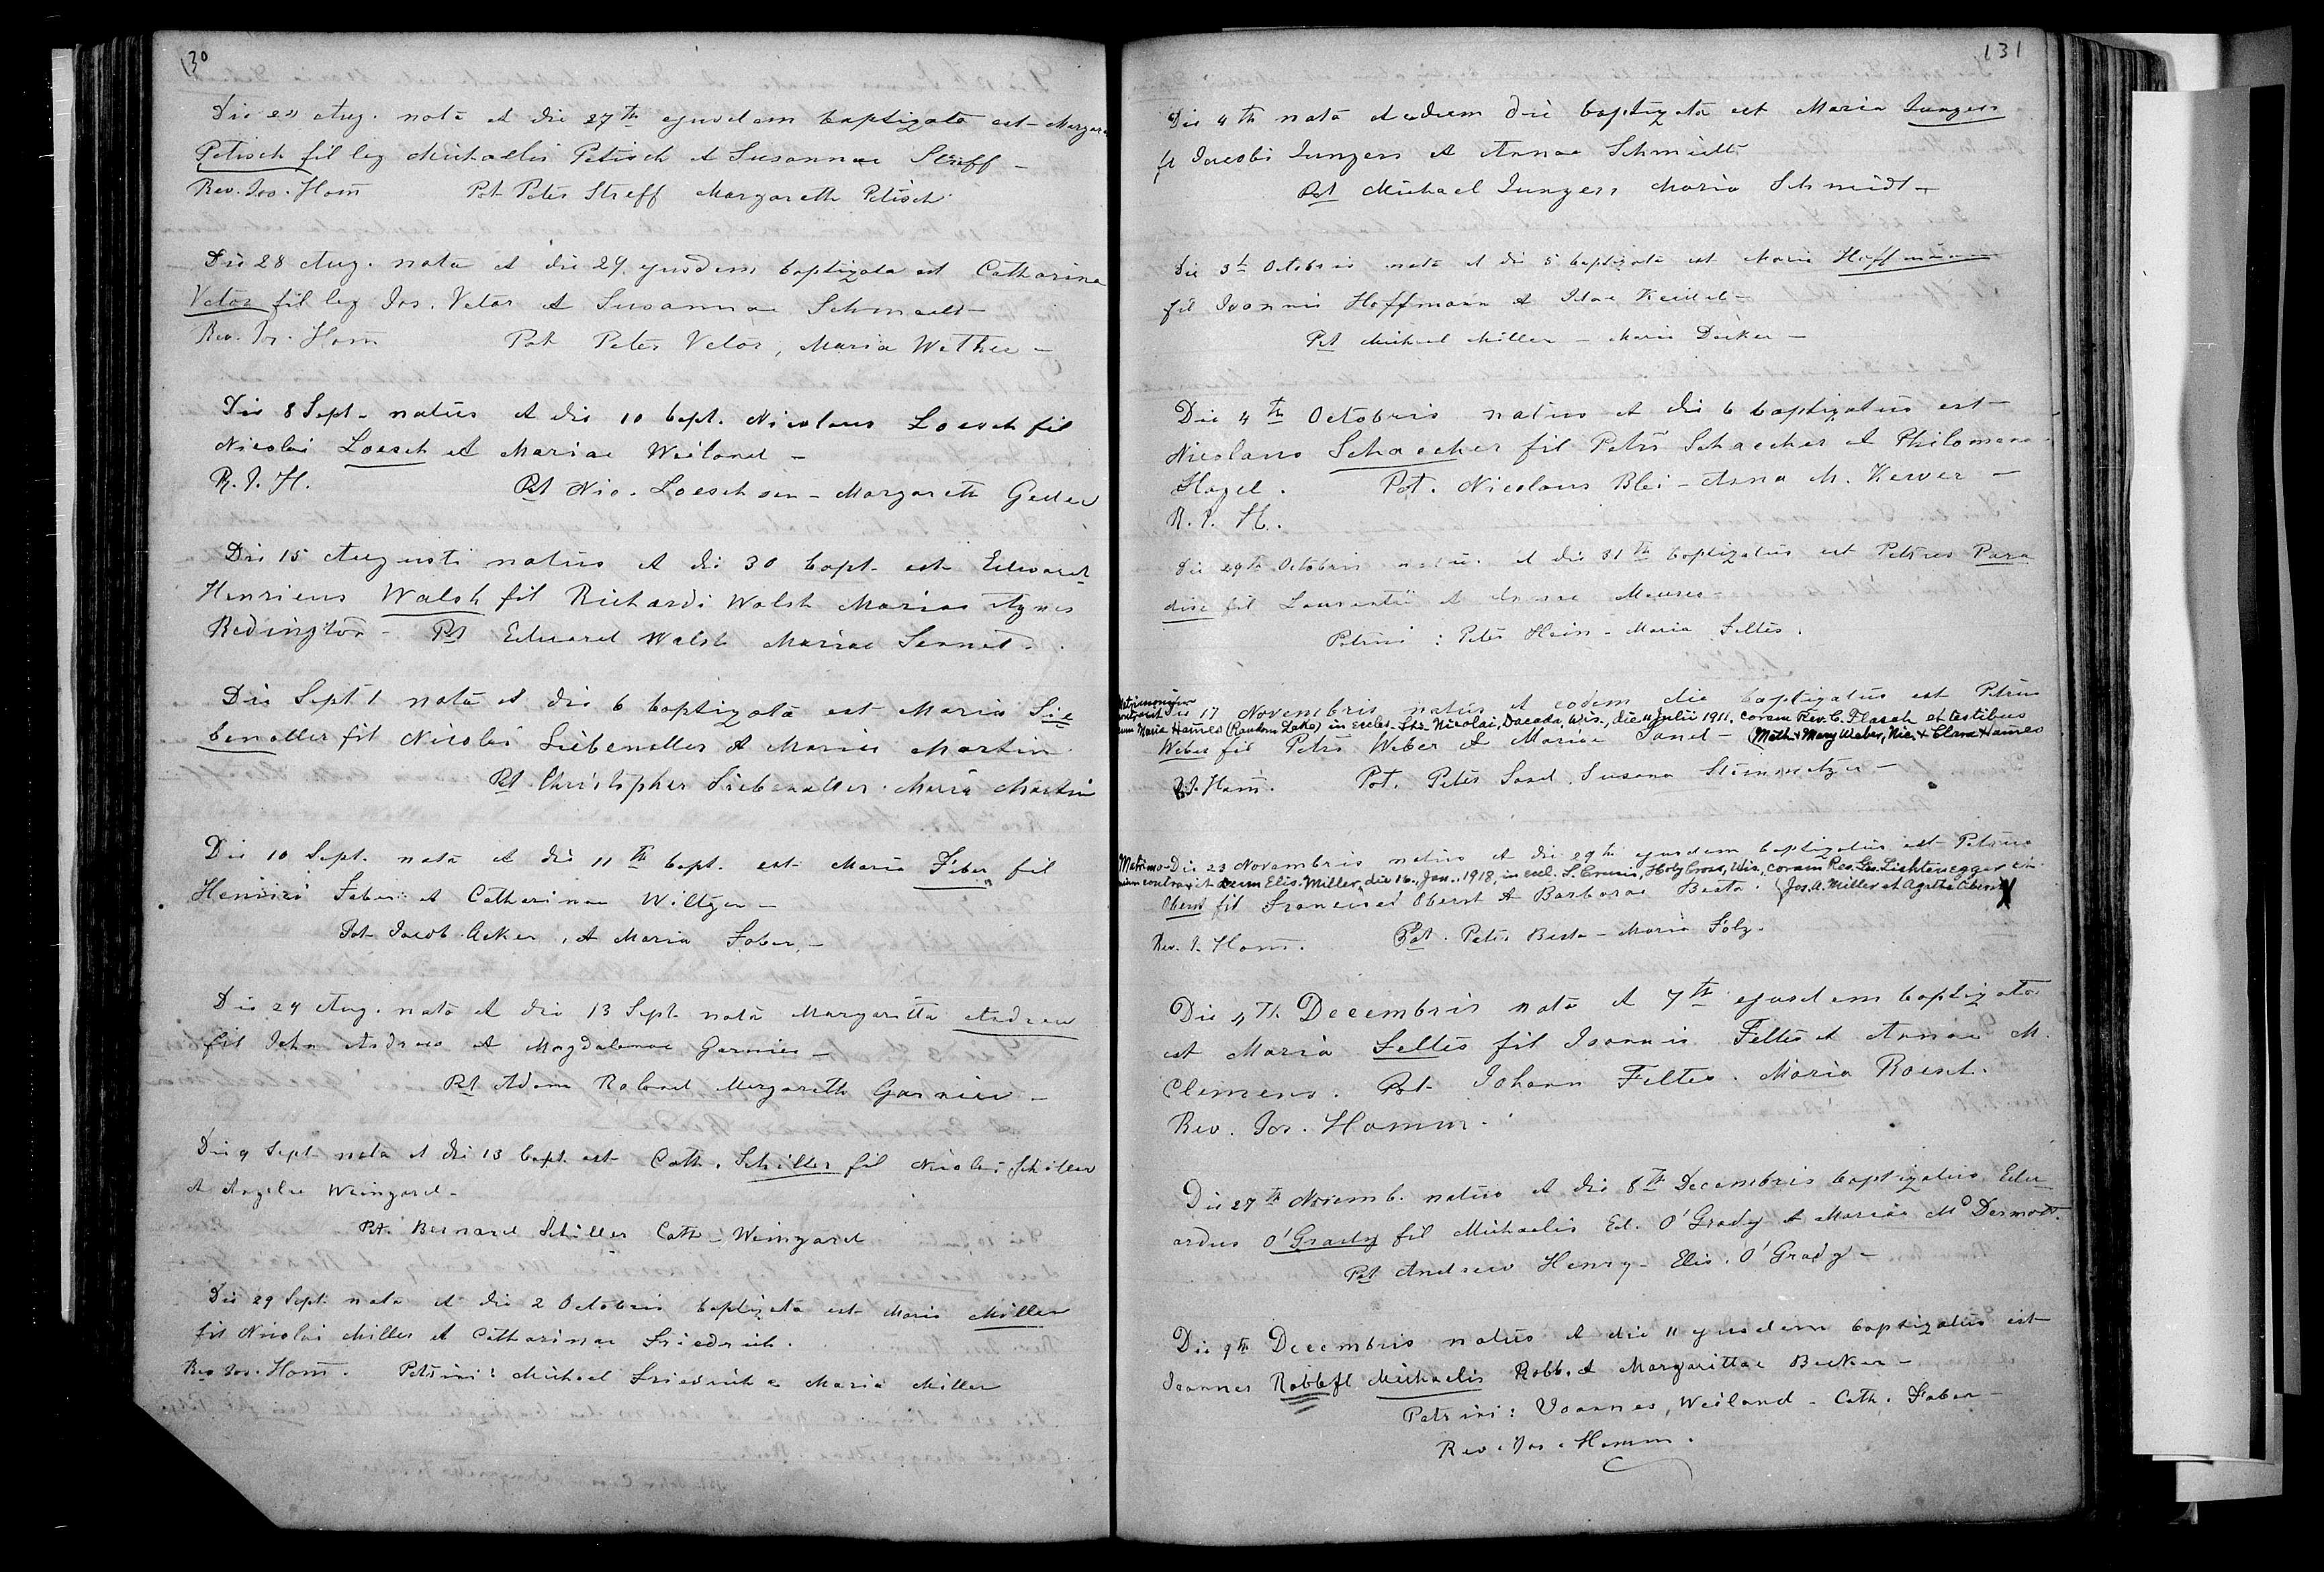 130
Die 20 Aug. nata et die 27th ejusdem baptizata est Margare
Petisch fil leg Michaelis Petisch et Susannae Streff –
Rev. Jos. Ham̄ Pat Peter Streff Margareth Petisch
Die 28 Aug. nata et die 29 ejusdem baptizata est Catharina
Vetor fil leg Jos. Vetor et Susannae Schmaeld –
Rev. Jos. Ham̄ Pat Peter Vetor, Maria Wether –
Die 8 Sept – natus et die 10 bapt. Nicolaus Loesch fil
Nicolai Loesch et Mariae Weiland –
R. J. H. Pat Nic. Loesch sen – Margareth Geder
Die 15 Augusti natus et die 30 bapt – est Edward
Henricus Walsh fil Richardi Walsh Mariae Agnes
Redington – Pat Eduard Walsh Mariae Sennet .
Die Sept 1 nata et die 6 baptizata est Maria Sie
benaller fil Nicolai Siebenaller et Mariae Martin
Pat Christopher Siebenaller . Maria Martin
Die 10 Sept. nata et die 11th bapt. est Maria Faber fil
Henrici Faber et Catharinae Wiltzen –
Pat Jacob Acker , et Maria Faber, –
Die 24 Aug. nata et die 13 Sept nata Margaritta Andrew
fil John Andrew et Magdalenae Garnier –
Pat Adam Roland Margareth Garnier –
Die 9 Sept – nata et die 13 bapt. est Cath. Schiller fil Nicolai Schiller
et Angelae Weingard –
Pat. Bernard Schiller Cath – Weingard
Die 29 Sept. nata et die 2 Octobris baptizata est Maria Miller
fil Nicolai Miller et Catharinae Friedrich .
Rev Jos. Ham̄ . Patrini : Michael Friedrich & Maria Miller
131
Die 4th nata et eodem die baptizata est Maria Jungers
fil Jacobi Jungers et Annae Schmidt
Pat Michael Jungers Maria Schmidt –
Die 3th Octobris nata et die 5 baptizata est Maria Hoffmann
fil Joannis Hoffmann et Idae Keidel –
Pat Michael Miller – Maria Decker –
Die 4th Octobris natus et die 6 baptizatus est
Nicolaus Schaecher fil Petri Schaecher et Philomena
Hagel . Pat. Nicolaus Blei – Anna M. Kewer –
R. J. H.
Die 29th Octobris natus et die 31th baptizatus est Petrus Para
dise fil Laurentii et Annae Maurer –
Patrini : Peter Hein – Maria Feltes .
Matrimonium
contraxit Die 17 Novembris natus et eodem die baptizatus est Petrus
cum Maria Hames (Random Lake) in eccles. Sti. Nicolai, Dacada, Wis., die 11 Julii 1911, coram Rev. C. Flasch et testibus
Weber fil Petri Weber et Mariae Sand – (Math & Mary Weber, Nic. & Clara Hames
R. J. Ham̄ . Pat. Peter Sand . Susana Steinmetzer –
Matrimo- Die 23 Novembris natus et die 29th ejusdem baptizatus est Petrus
nium contraxit cum Elis. Miller, die 16. Jan., 1918, in eccl. S. Crucis, Holy Cross, Wis., coram Rev. Geo. Lichtenegger et
Oberst fil Francisci Oberst et Barbarae Besta . (Jos. A. Miller et Agatha Oberst
Rev. J. Ham̄ . Pat . Peter Besta – Maria Folz .
Die 4th Decembris nata et 7th ejusdem baptizata
est Maria Feltes fil Joannis Feltes et Annae M.
Clemens . Pat – Johann Feltes . Maria Roesh .
Rev. Jos. Hamm .
Die 27th Novemb. natus et die 8th Decembris baptizatus Edu
ardus O'Grady fil Michaelis Ed. O'Grady et Mariae McDermott .
Pat Andrew Henry – Elis. O'Grady –
Die 9th Decembris natus et die 11 ejusdem baptizatus est
Joannes Robb fil Michaelis Robb . et Margarittae Becker –
Patrini : Joannes, Weiland – Cath. Faber –
Rev. Jos. Hamm .